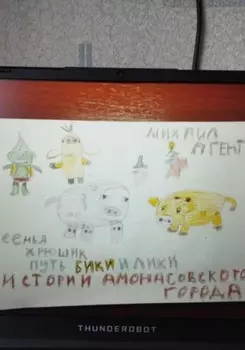 МИХАИЛ
АГЕНТ
СЕМЬЯ
ХРЮШИК
ПУТЬ БИКИ И ЛИКИ
ИСТОРИИ АМОНАСОВСКОГО
ГОРОДА
THUNDEROBOT